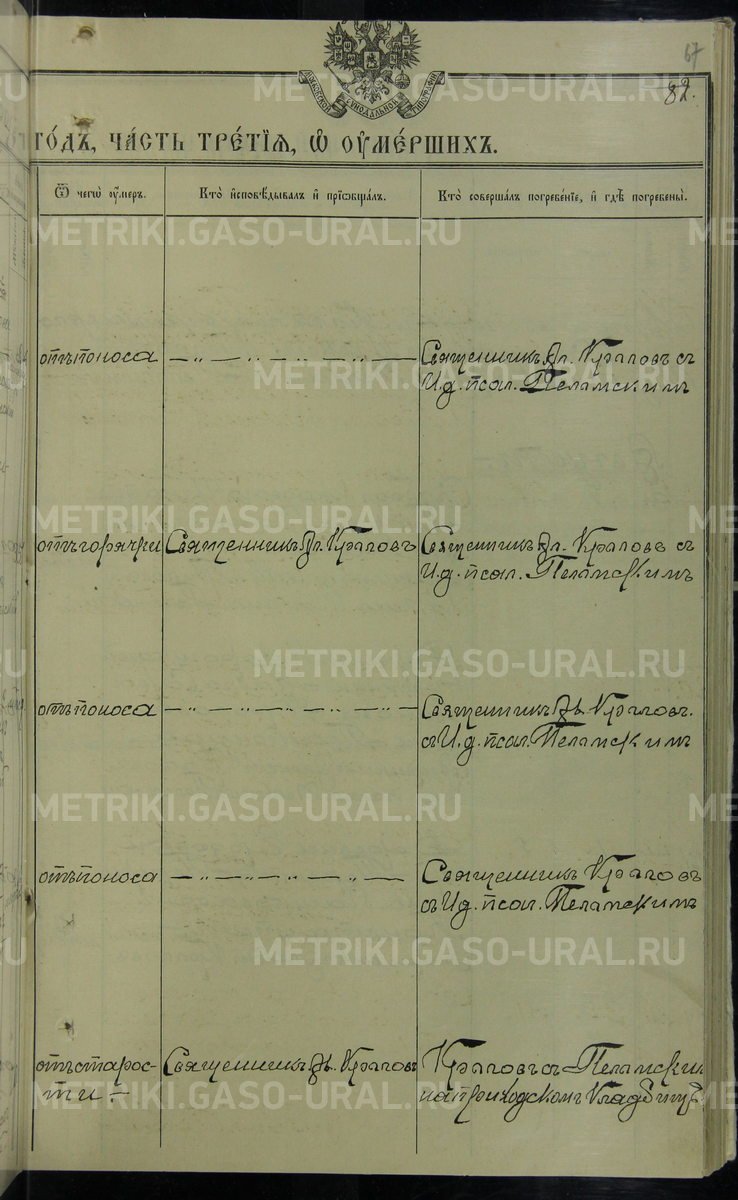 67
82.
годъ, ча́сть тре́тїѧ, ѡ҆ оу҆ме́ршихъ.
Ѿ чегѡ̀ оу҆́меръ.
Кто̀ и҆сповѣ́дывалъ и҆ прїѡбща́лъ.
Кто̀ соверша́лъ погребе́нїе, и҆ гдѣ̀ погребены̀.
отъ поноса — „ — „ — „ — „ —
Священникъ Вл. Краповъ съ
И.д. псал. Пеламскимъ
отъ горячки Священникъ Вл. Краповъ
Священникъ Вл. Краповъ съ
И.д. псал. Пеламскимъ
отъ поноса — „ — „ — „ — „ —
Священникъ Вл. Краповъ.
съ И.д. псал. Пеламскимъ
отъ поноса — „ — „ — „ — „ —
Священникъ Краповъ
съ И.д. псал. Пеламскимъ
отъ старос-
ти. —
Священникъ Вл. Краповъ
Краповъ съ Пеламским
на приходскомъ кладбищѣ
METRIKI.GASO-URAL.RU